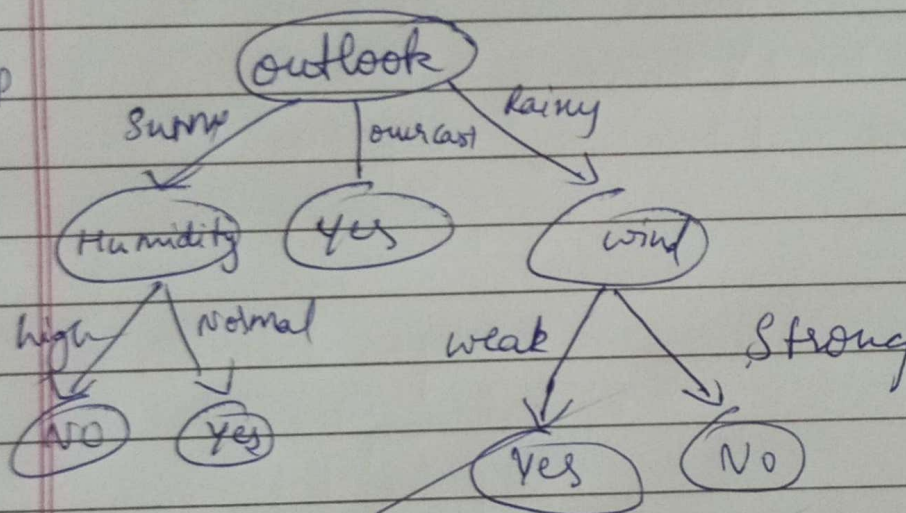 outlook
Sunny overcast Rainy
Humidity Yes wind
high Normal weak Strong
No Yes Yes No